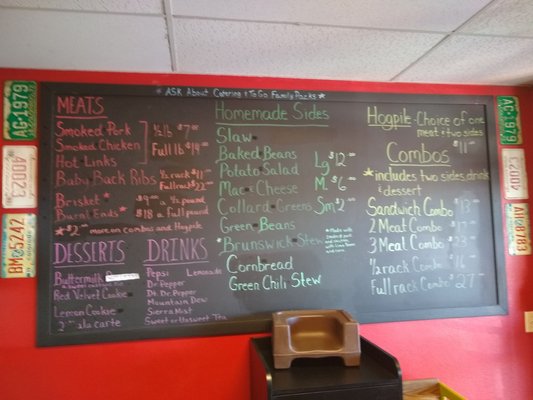 ★ ASK About Catering & To Go Family Packs ★
MEATS
Smoked Pork
Smoked Chicken
Hot Links
½ lb $7.00
Full lb $14.00
Baby Back Ribs
½ rack $11
Full rack $22
Brisket
Burnt Ends
$9 a ½ pound
$18 a full pound
★$2 more on combos and Hogpile
DESSERTS
Buttermilk
Red Velvet Cookie
Lemon Cookie
2 a la carte
DRINKS
Pepsi
Lemonade
Dr Pepper
Dt. Dr Pepper
Mountain Dew
Sierra Mist
Sweet or Unsweet Tea
Homemade Sides
Slaw
Baked Beans
Potato Salad
Mac & Cheese
Collard Greens
Green Beans
★Brunswick Stew
Cornbread
Green Chili Stew
Lg $12
M. $6
Sm $2
Hogpile - Choice of one
meat & two sides
$11
Combos
★includes two sides, drink
& dessert
Sandwich Combo $13
2 Meat Combo $17
3 Meat Combo $23
½ rack Combo $16
Full rack Combo $27
AG-1979
A0023
BM 5242
979
40023
AP 8781